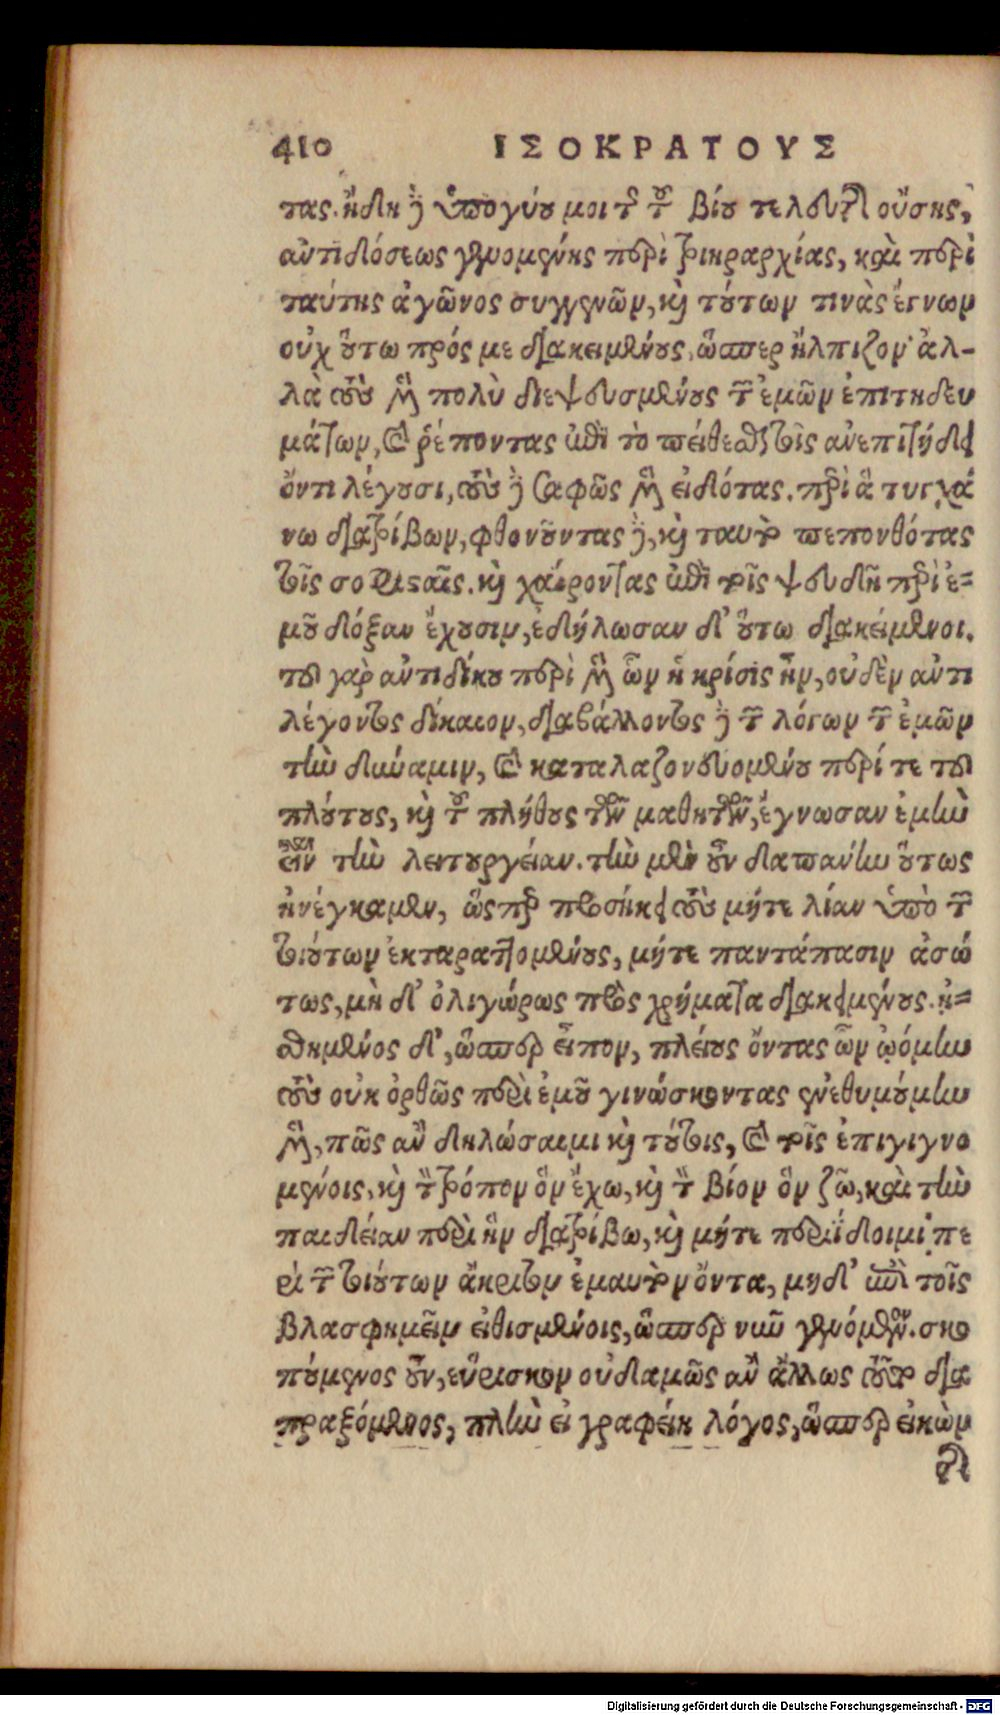 410 ΙΣΟΚΡΑΤΟΥΣ
τας. ἤδη δὲ ὑπογύου μοι τῆς τοῦ βίου τελευτῆς οὔσης,
ἀντιδόσεως γενομένης περὶ τριηραρχίας, καὶ περὶ
ταύτης ἀγῶνος συγγνῶν, καὶ τούτων τινὰς ἔγνων
οὐχ οὕτω πρός με διακειμένους, ὥσπερ ἤλπιζον· ἀλ-
λὰ τοὺς μὲν πολὺ διεψευσμένους τῶν ἐμῶν ἐπιτηδευ
μάτων, καὶ ῥέποντας ἐπὶ τὸ πείθεσθαι τοῖς ἀνεπιτήδει
όν τι λέγουσι, τοὺς δὲ σαφῶς μὲν εἰδότας. περὶ ἃ τυγχά
νω διατρίβων, φθονοῦντας δὲ, καὶ ταυτὸ πεπονθότας
τοῖς σοφισταῖς. καὶ χαίροντας ἐπὶ τοῖς ψευδῆ περὶ ἐ-
μοῦ δόξαν ἔχουσιν, ἐδήλωσαν δ' οὕτω διακείμενοι.
τοῦ γὰρ ἀντιδίκου περὶ μὲν ὧν ἡ κρίσις ἦν, οὐδὲν ἀντι
λέγοντος δίκαιον, διαβάλλοντος δὲ τῶν λόγων τῶν ἐμῶν
τὴν δύναμιν, καὶ καταλαζονευομένου περί τε τοῦ
πλούτους, καὶ τοῦ πλήθους τῶν μαθητῶν, ἔγνωσαν ἐμὴν
εἶναι τὴν λειτουργείαν. τὴν μὲν οὖν δαπάνην οὕτως
ἠνέγκαμεν, ὥσπερ προσήκει τοὺς μήτε λίαν ὑπὸ τῶν
τοιούτων ἐκταραττομένους, μήτε παντάπασιν ἀσώ
τως, μὴ δ' ὀλιγώρως πρὸς χρήματα διακειμένους. ᾐ-
σθημένος δ', ὥσπερ εἶπον, πλείους ὄντας ὧν ᾠόμην
τοὺς οὐκ ὀρθῶς περὶ ἐμοῦ γινώσκοντας ἐνεθυμούμην
μὲν, πῶς ἂν δηλώσαιμι καὶ τούτοις, καὶ τοῖς ἐπιγιγνο
μένοις, καὶ τὸν τρόπον ὃν ἔχω, καὶ τὸν βίον ὃν ζῶ, καὶ τὴν
παιδείαν περὶ ἣν διατρίβω, καὶ μήτε περιΐδοιμι πε
ρὶ τῶν τοιούτων ἄκριτον ἐμαυτὸν ὄντα, μηδ' ἐπὶ τοῖς
βλασφημεῖν εἰθισμένοις, ὥσπερ νῦν γενόμενον. σκο
πούμενος οὖν, εὕρισκον οὐδαμῶς ἂν ἄλλως τοῦτο δια
πραξόμενος, πλὴν εἰ γραφείη λόγος, ὥσπερ εἰκὼν
τῆς
Digitalisierung gefördert durch die Deutsche Forschungsgemeinschaft - DFG